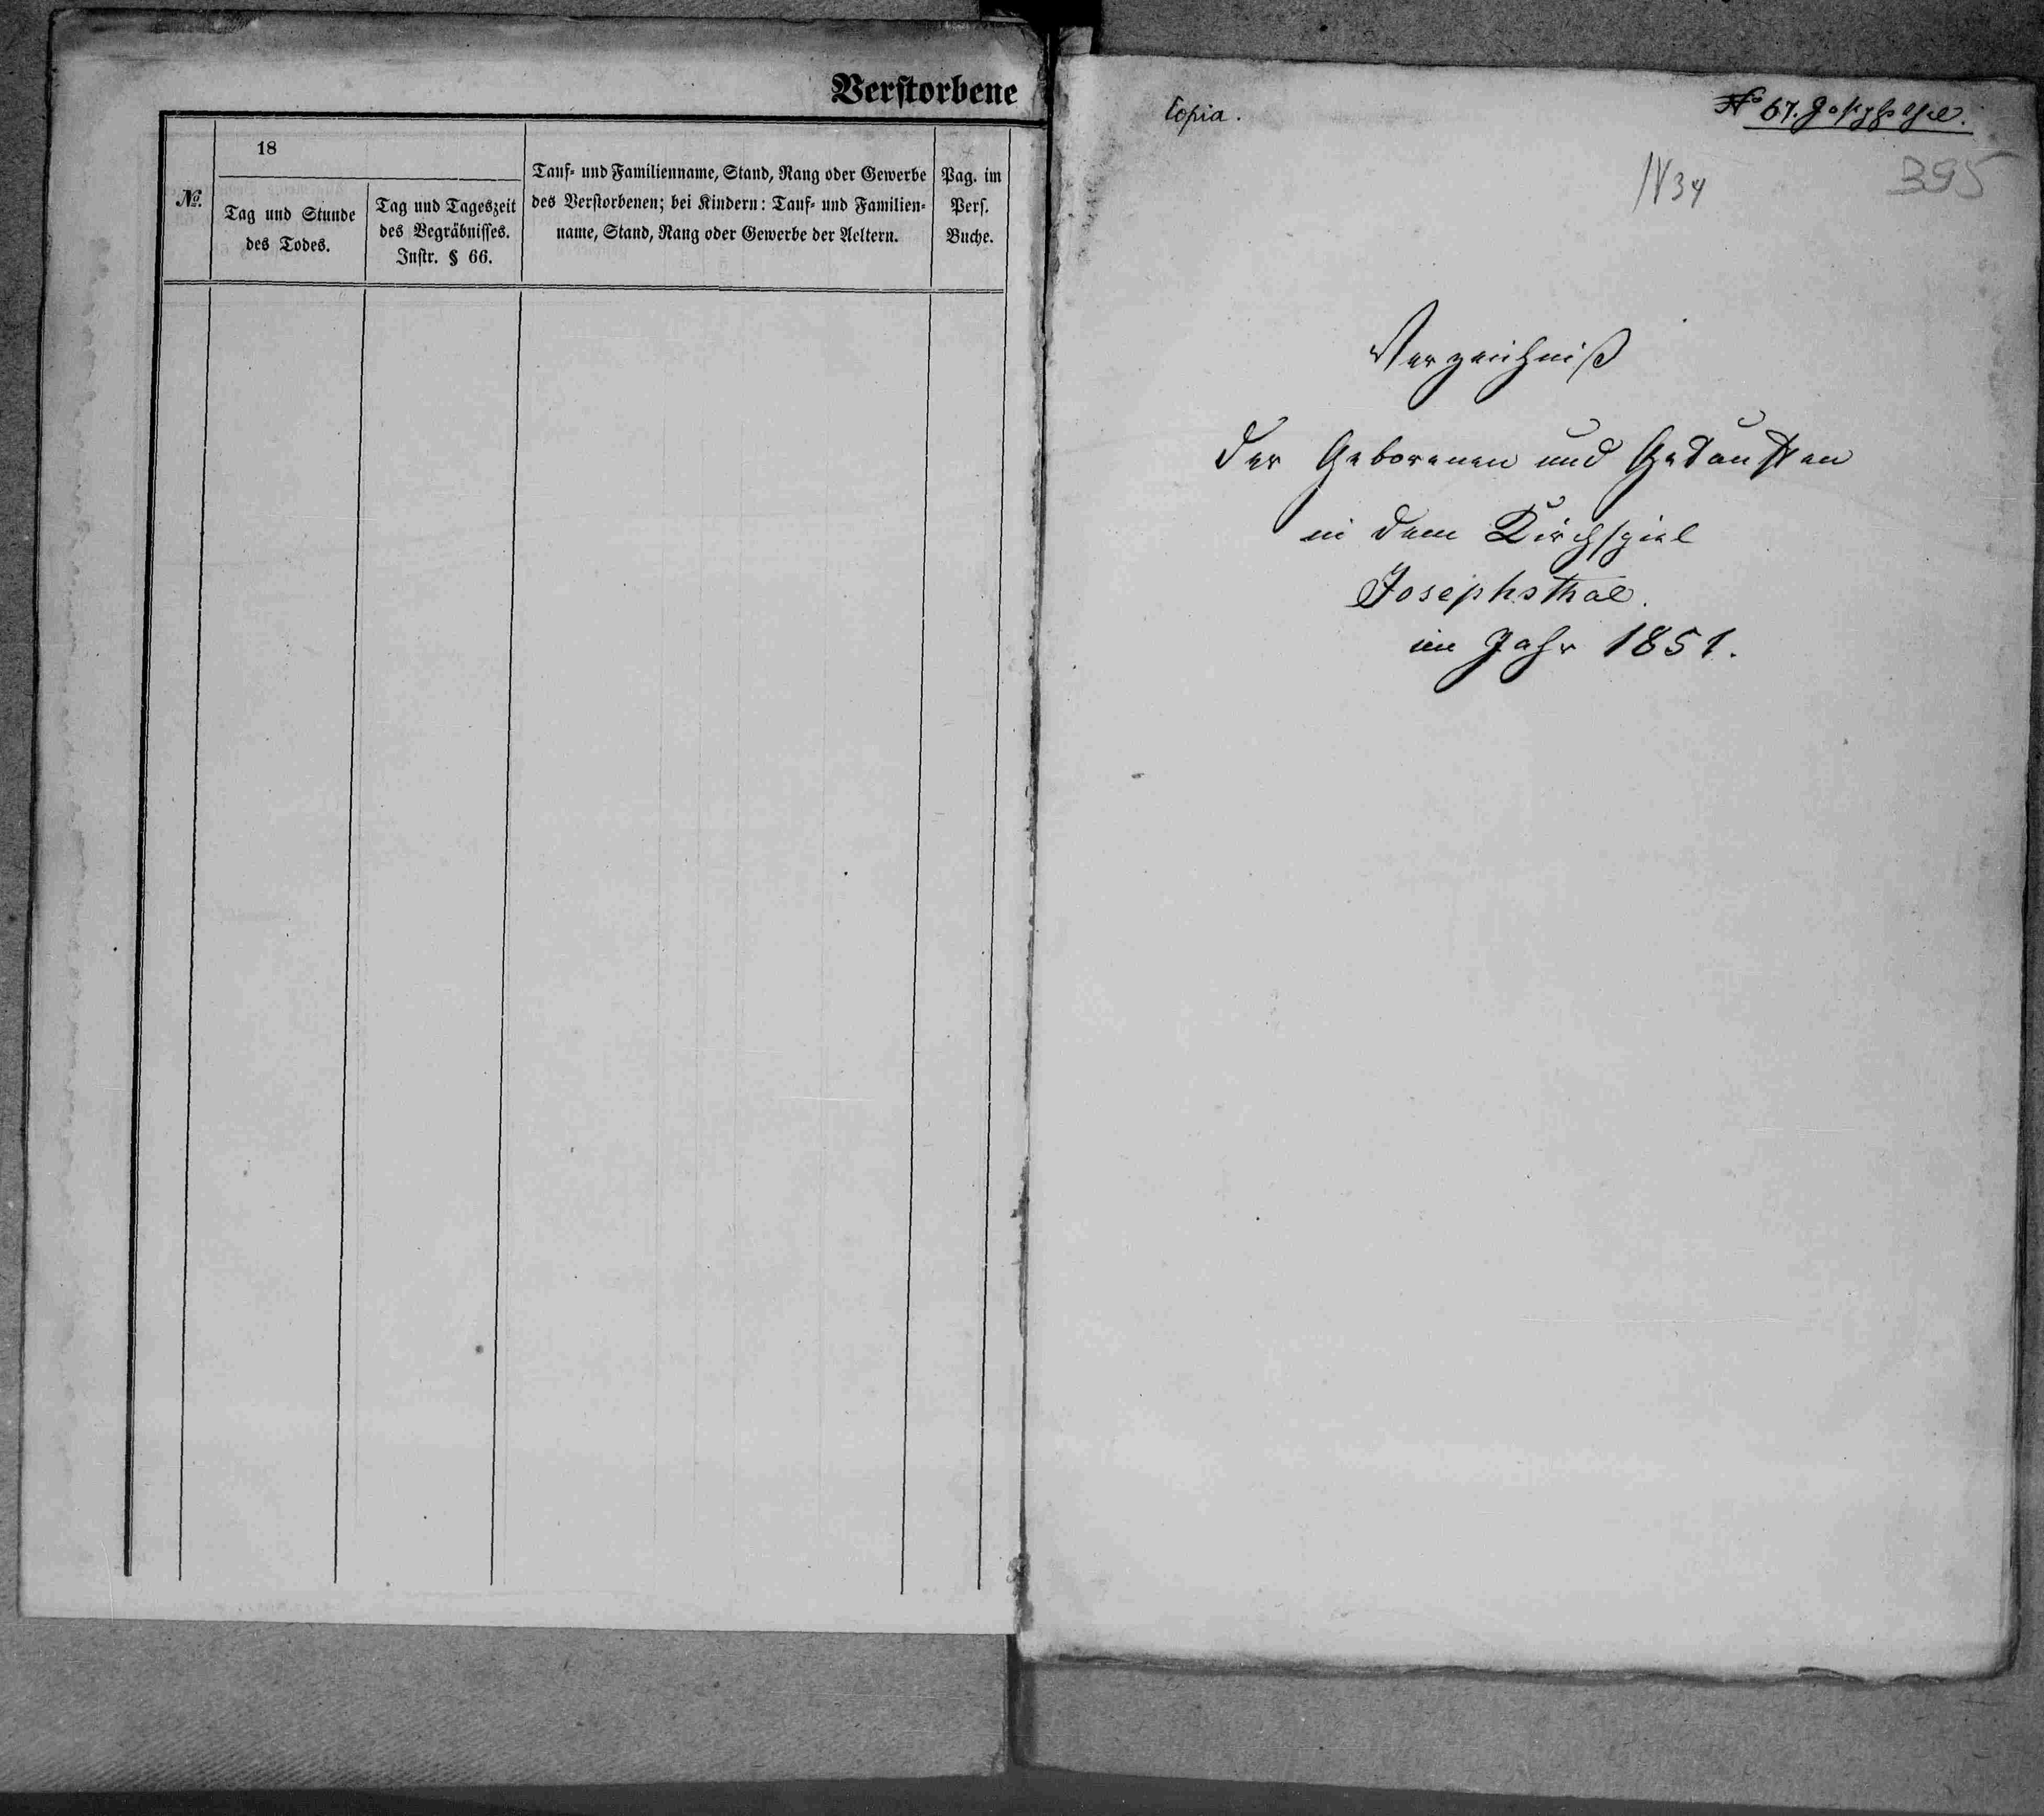 Verstorbene
18
No.
Tag und Stunde
des Todes.
Tag und Tageszeit
des Begräbnisses.
Instr. § 66.
Tauf- und Familienname, Stand, Rang oder Gewerbe
des Verstorbenen; bei Kindern: Tauf- und Familien-
name, Stand, Rang oder Gewerbe der Aeltern.
Pag. im
Pers.
Buche.
Copia.
No 67. Josephsthal.
IV 34
395
Verzeichniß
der Geborenen und Getauften
in dem Kirchspiel
Josephsthal.
im Jahr 1851.